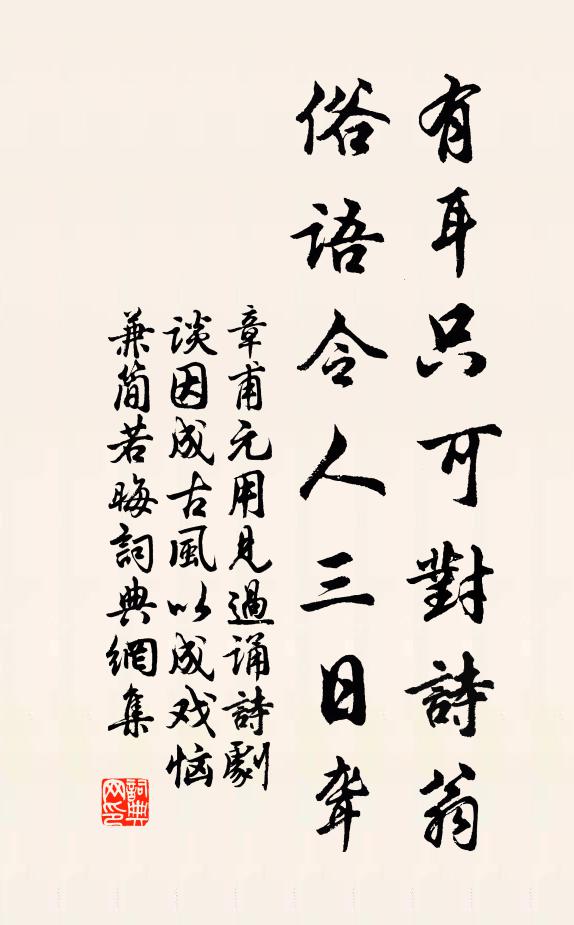 有耳只可對詩翁
俗語令人三日聾
章甫元用見過誦詩劇
談因成古風以成戏恼
兼简若晦詞典網集
詞典網印